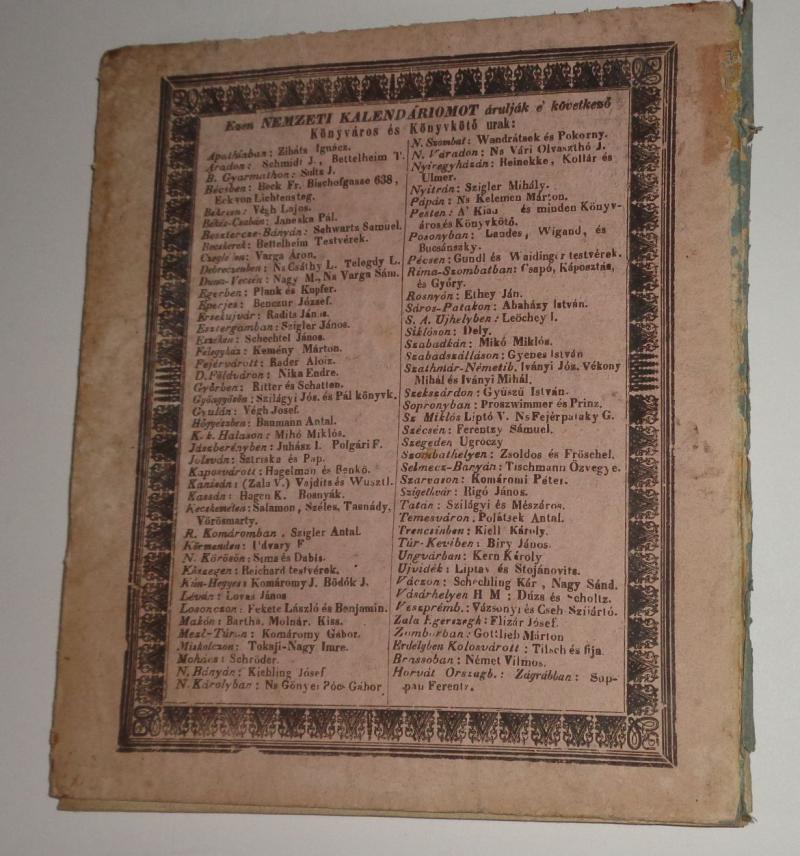 Ezen NEMZETI KALENDÁRIOMOT árulják e' következő
Könyváros és Könyvkötő urak:
Apathinban: Zibáts Ignácz.
Aradon: Schmidt J., Bettelheim T.
B. Gyarmathon: Sultz J.
Bécsben: Beck Fr. Bischofgasse 638,
Eck von Lichtensteg.
Békésen: Végh Lajos.
Békés-Csabán: Janeska Pál.
Besztercze-Bányán: Sehwartz Samuel.
Becskerek: Bettelheim Testvérek.
Varga Áron.
Debreczenben: Ns Csáthy L. Telegdy L.
Duna-Vecsén: Nagy M., Ns Varga Sám.
Egerben: Plank és Kupfer.
Eperjes: Benczur József.
Érsekujvár: Radits János.
Esztergamban: Szigler János.
Eszéken: Schechtel János.
Félegyház: Kemény Márton.
Fejérvárott: Rader Aloiz.
D. Földváron: Nika Endre.
Győrben: Ritter és Schatten.
Gyöngyösön: Szilágyi Jós. és Pál könyvk.
Gyulán: Végh Josef.
Högyészben: Baumann Antal.
K. k. Halason: Mihó Miklós.
Jászberényben: Juhász I. Polgári F.
Jolsván: Sztriska és Pap.
Kaposvárott: Hagelman és Benkó.
Kanisán: (Zala V.) Vajdits és Wusztl.
Kassán: Hagen K. Bosnyák.
Kecskeméten: Salamon, Széles, Tasnády,
Vörösmarty.
R. Komáromban. Szigler Antal.
Körmenden: Udvary F
N. Körösön: Sima és Dabis.
Köszegen: Reichard testvérek.
Kún-Hegyes: Komáromy J. Bödők J.
Léván: Lovas János
Losonczon: Fekete László és Benjamin.
Makón: Bartha, Molnár, Kiss.
Mező-Túron: Komáromy Gábor.
Miskolczon: Tokaji-Nagy Imre.
Mohács: Schröder.
N. Bányán: Kiebling Jósef
N. Károlyban: Ns Gönyei Póc Gábor
N. Szombat: Wandrátsek és Pokorny.
N. Váradon: Ns Vári Olvaszthó J.
Nyiregyházán: Heinekke, Kollár és
Ulmer.
Nyitrán: Szigler Mihály.
Pápán: Ns Kelemen Márton.
Pesten: A' Kiad és minden Könyv-
áros és Könyvkötő.
Posonyban: Landes, Wigand, és
Bucsánszky.
Pécsen: Gundl és Waidinger testvérek.
Rima-Szombatban: Csapó, Káposztás,
és Győry.
Rosnyón: Ethey Ján.
Sáros-Patakon: Abaházy István.
S. A. Ujhelyben: Leöchey I.
Siklóson: Dely.
Szabadkán: Mikó Miklós.
Szabadszálláson: Gyenes István
Szathmár-Németib. Iványi Józ. Vékony
Mihál és Iványi Mihál.
Szekszárdon: Gyüszü István.
Sopronyban: Proszwimmer és Prinz.
Sz Miklós Liptó V. Ns Fejérpataky G.
Szécsén: Ferentzy Sámuel.
Szegeden Ugróczy
Szombathelyen: Zsoldos és Fröschel.
Selmecz-Banyán: Tischmann Özvegye.
Szarvason: Komáromi Péter.
Szigethvár: Rigó János.
Tatán: Szilágyi és Mészáros.
Temesváron. Polátsek Antal.
Trencsinben: Kiell Károly.
Túr-Keviben: Biry János.
Ungvárban: Kern Károly
Ujvidék: Liptav és Stojánovits.
Váczon: Schechling Kár, Nagy Sánd.
Vásárhelyen H M: Dúzs és Scholtz.
Veszprémb.: Vázsonyi és Cseh Szijártó.
Zala Egerszegh: Flizár Jósef.
Zomborban: Gottlieb Márton
Erdelyben Kolosvárott: Tilsch és fija
Brassoban: Német Vilmos.
Horvát Országb.: Zágrábban: Sup-
pan Ferentz.